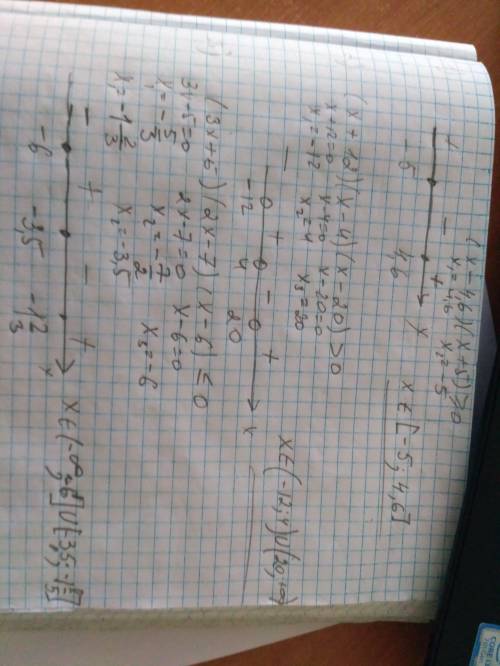 (x - 4,6)(x + 5) ≥ 0
x₁ = 4,6 x₂ = -5
+ - +
-5 4,6 x
x ∈ [-5; 4,6]
(x + 12)(x - 4)(x - 20) > 0
x + 12 = 0 x - 4 = 0 x - 20 = 0
x₁ = -12 x₂ = 4 x₃ = 20
- + - +
-12 4 20 x
x ∈ (-12; 4) ∪ (20; +∞)
(3x + 5)(2x - 7)(x - 6) ≤ 0
3x - 5 = 0 2x - 7 = 0 x - 6 = 0
x₁ = -5/3 x₂ = -7/2 x₃ = -6
x₁ = -1 2/3 x₂ = -3,5
- + - +
-6 -3,5 -1 2/3 x